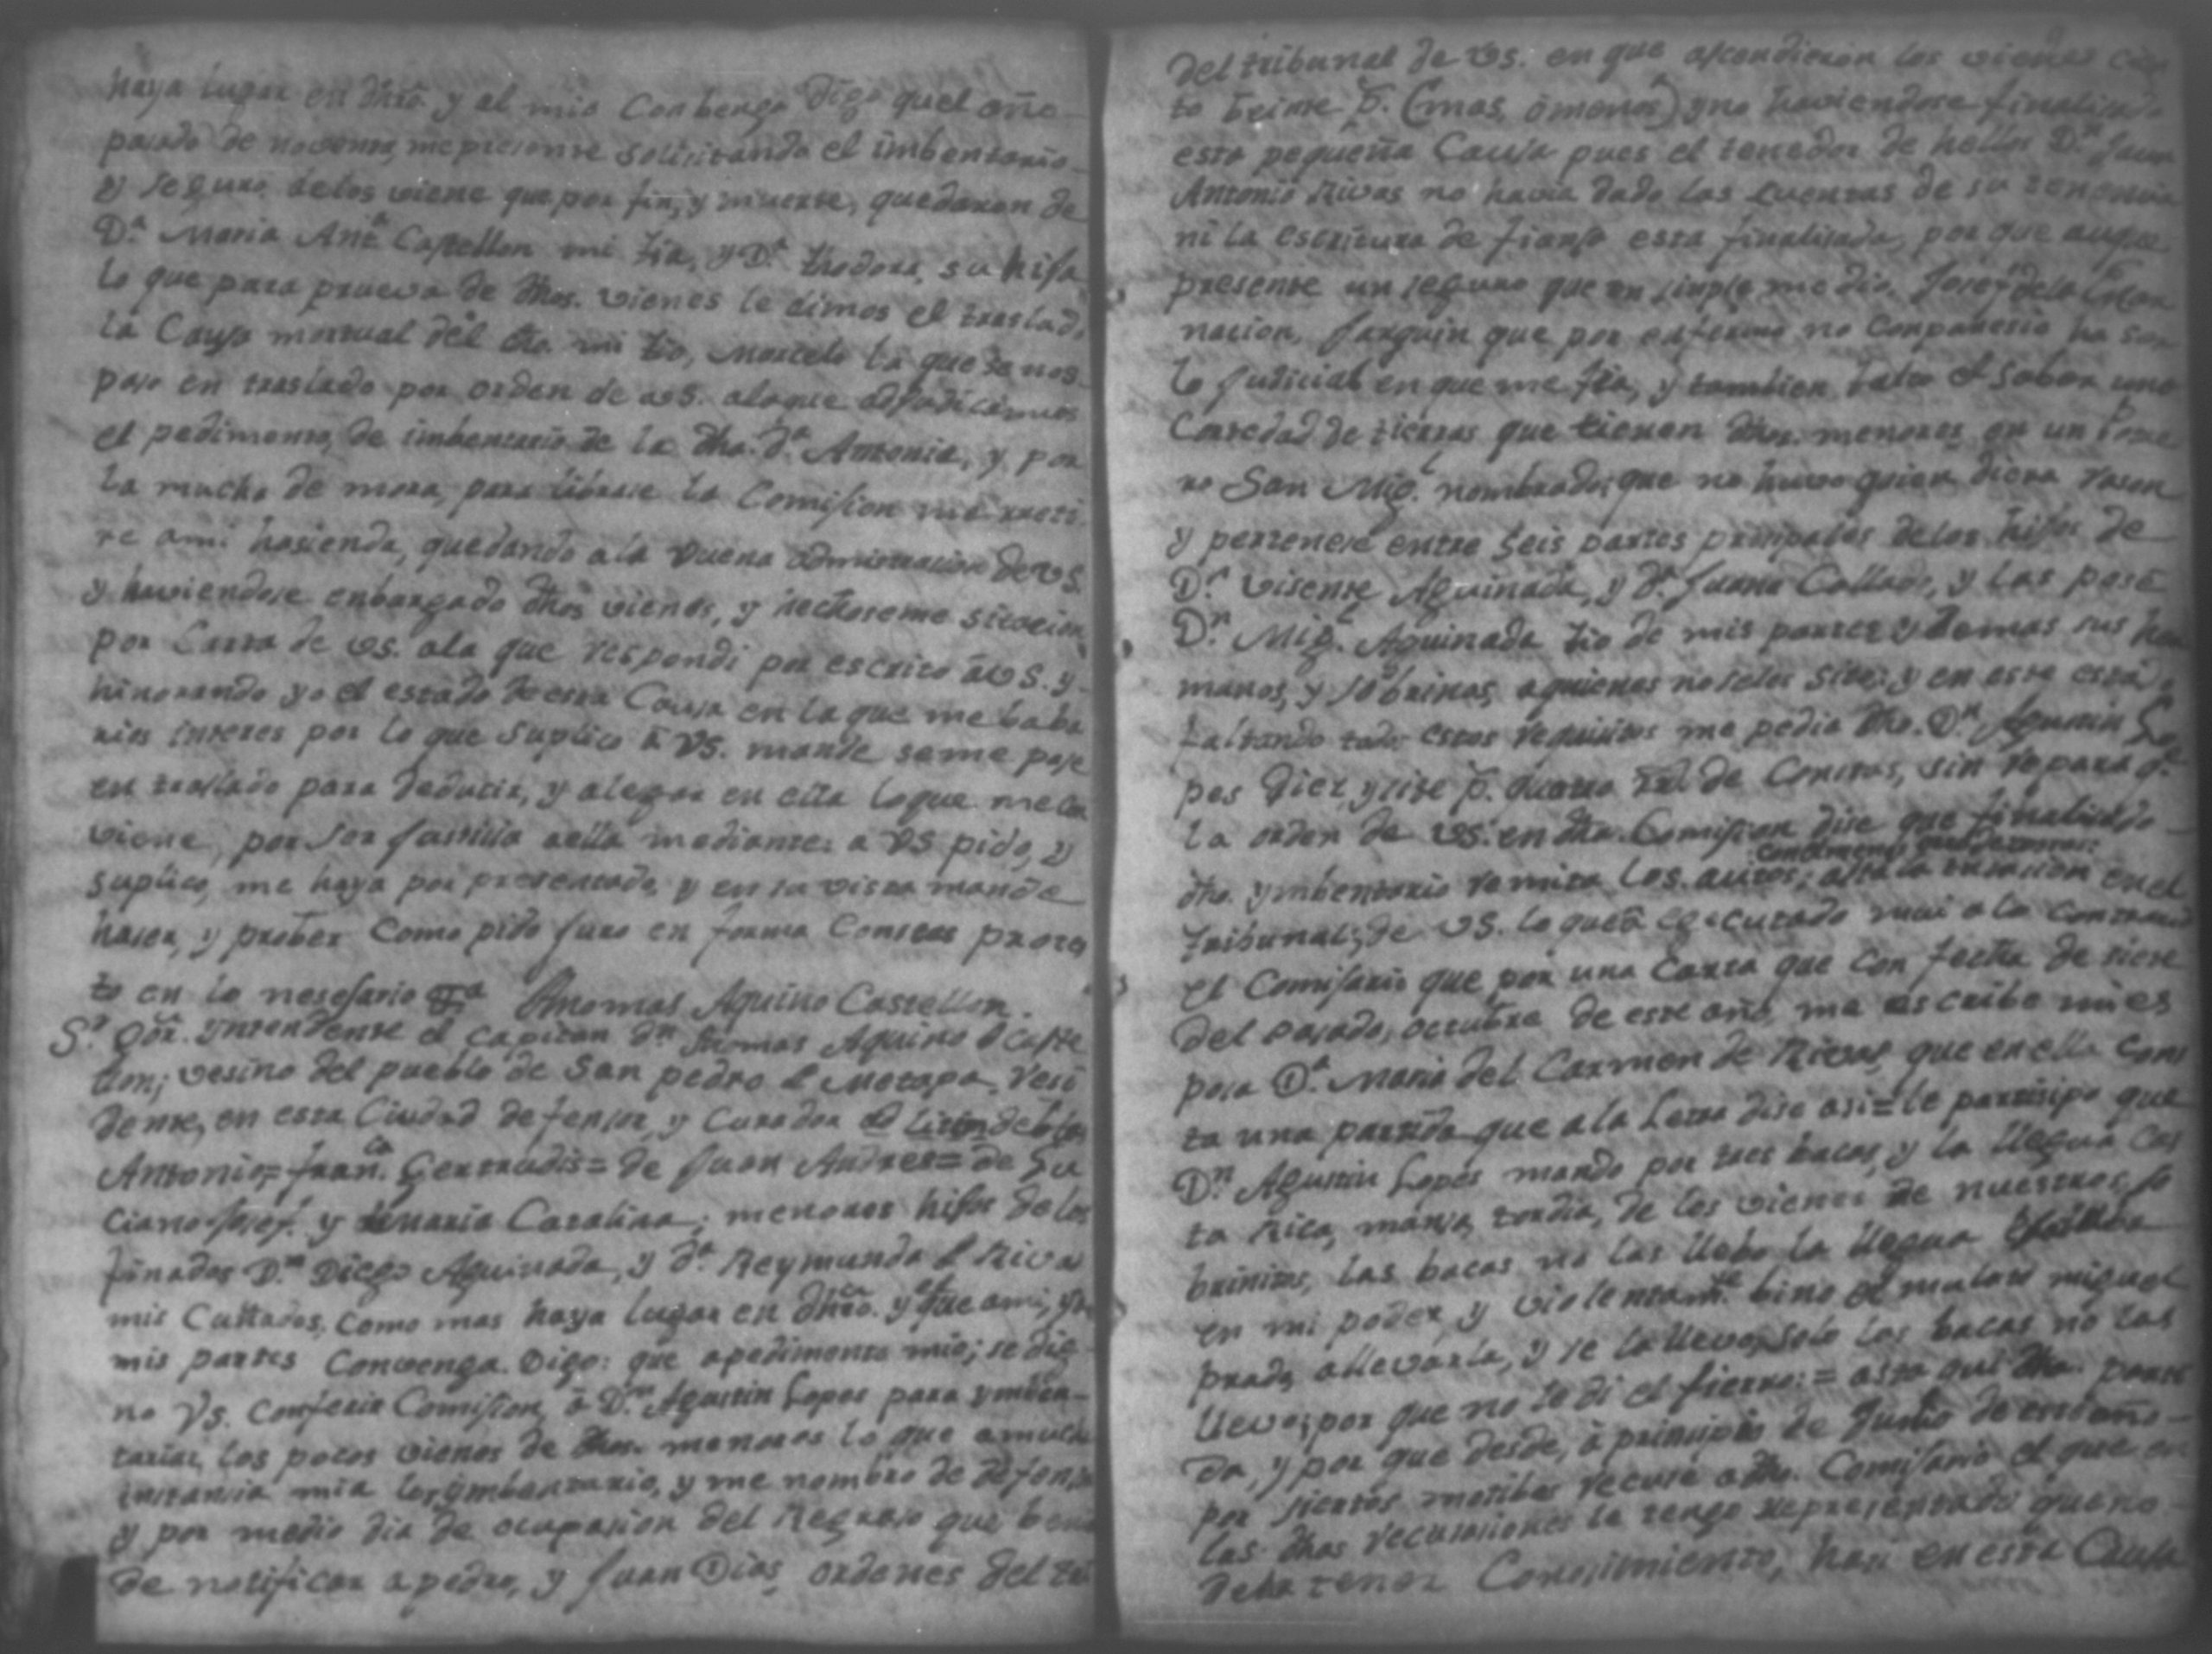 haya lugar en dhrô. y al mio Conbenga Digo quel año
pasado de noventa, me presente solisitando el imbentario
y seguro delos viene que por fin, y muerte, quedaron de
D.ª Maria Anª Castellon mi tia, y D.ª theodora, su hija
lo que para prueva de dhos. vienes le dimos el traslado
la Causa mortual del dho. mi tio, Marcelo la que se nos
paso en traslado por orden de vS. alaque
el pedimento, de imbentario de la dha. d.ª Antonia, y por
la mucha de mora, para librase la Comision me rreti
re ami hasienda, quedando ala buena admistracion de vS.
y haviendose enbargado dhos vienes, y hechoseme sitacion
por Carta de vS. ala que respondi por escrito â vS. y
hinorando yo el estado de esta Causa en la que me baba
rios interes por lo que suplico â VS. mande seme pase
en traslado para deducir, y alegar en ella loque me con
viene, por ser justisia aella mediante: a VS pido, y
suplico, me haya por presentado y en su vista mande
haser, y prober Como pido juro en forma Costas protes
to en lo nesesario Thomas Aquino Castellon.
S.r Gôr. Yntendente el Capitan d.n thomas Aquino d Caste
llon; vesino del pueblo de San pedro d Metapa. resi
dente, en esta Ciudad defensor, y Curador ad litem delos
Antonio,= franca. Gertrudis= de Juan Andres= de Lu
ciano Josef. y Maria Catalina; menores hijos delos
finados D.n Diego Aguinada, y d.ª Reymunda d Rivas
mis Cuñados, Como mas haya lugar en dhrô. y que ami, y a
mis partes Convenga Digo: que apedimento mio; se dig
no VS. Conferir Comision, â D.n Agustin Lopes para ymben-
tariar, los pocos vienes de dhos. menores lo que amucha
instansia mia los ymbentario, y me nombro de defensor
y por medio dia de ocupasion del Regreso que
de notificar apedro, y Juan Dias, ordenes del tri
Del tribunal de vS. en que ascondieron los vienes cien
to beinte p.s (mas ô menos) y no haviendose finalisado
esta pequeña Causa pues el tenedor de hellos D.n Juan
Antonio Rivas no havia dado las Cuentas de su tenencia
ni la escritura de fiansa esta finalisada, por que aunque
presente un seguro que en simple me dio Josef dela Encar
nacion, que por enfermo no Conparesio
lo Judicial en que me fia, y tambien falta el saber una
Cortedad de tierras que tienen dhos. menores en un Potre
ro San Mig.l nombrado; que no huvo quien diera rason
y pertenese entre seis partes prinsipales delos hijos de
D.n Visente Aguinada, y d.ª Juana Collado, y las posé
D.n Mig.l Aguinada tio de mis partes y demas sus her
manos, y sobrinos, aquienes nose los site; y en este estado
faltando todo estos requisitos me pedia dho. D.n Agustin Lo
pes Diez, y siete p.s quatro rrl de Constas, sin repara q.e
la orden de VS. en dha. Comision dise que finalisado
dho. ymbentario remita los autos; asta la tasasion en el
tribunal; de VS. lo queâ executado mui ala Contrario
el Comisario que por una Carta que con fecha de siete
del pasado, octubre de este año, me escribe mi es
posa D.ª Maria del Carmen de Rivas, que en ella Cons
ta una partida que ala Letra dise asi= le partisipo que
D.n Agustin Lopes mando por tres bacas, y la llegua Cos
ta Rica, mansa, tordia, de los vienes de nuestros so
brinitos, las bacas no las llebo la llegua
en mi poder, y violentam.te bino el mulato miguel
prado, allevarla, y se la llevo, solo las bacas no las
llevo; por que no le di el fierro:= asta qui dha. parti
da, y por que desde, â prinsipio de Junio de este año
por siertos motibos recuse adho. Comisario el que en
las dhas recusasiones le tengo representado queno
deba tener Conosimiento, hasi en esta Causa